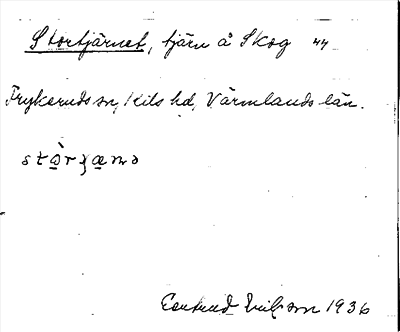 Stortjärnet, tjärn å Skog 44
Frykeruds sn, Kils hd, Värmlands län.
Eriksson 1936